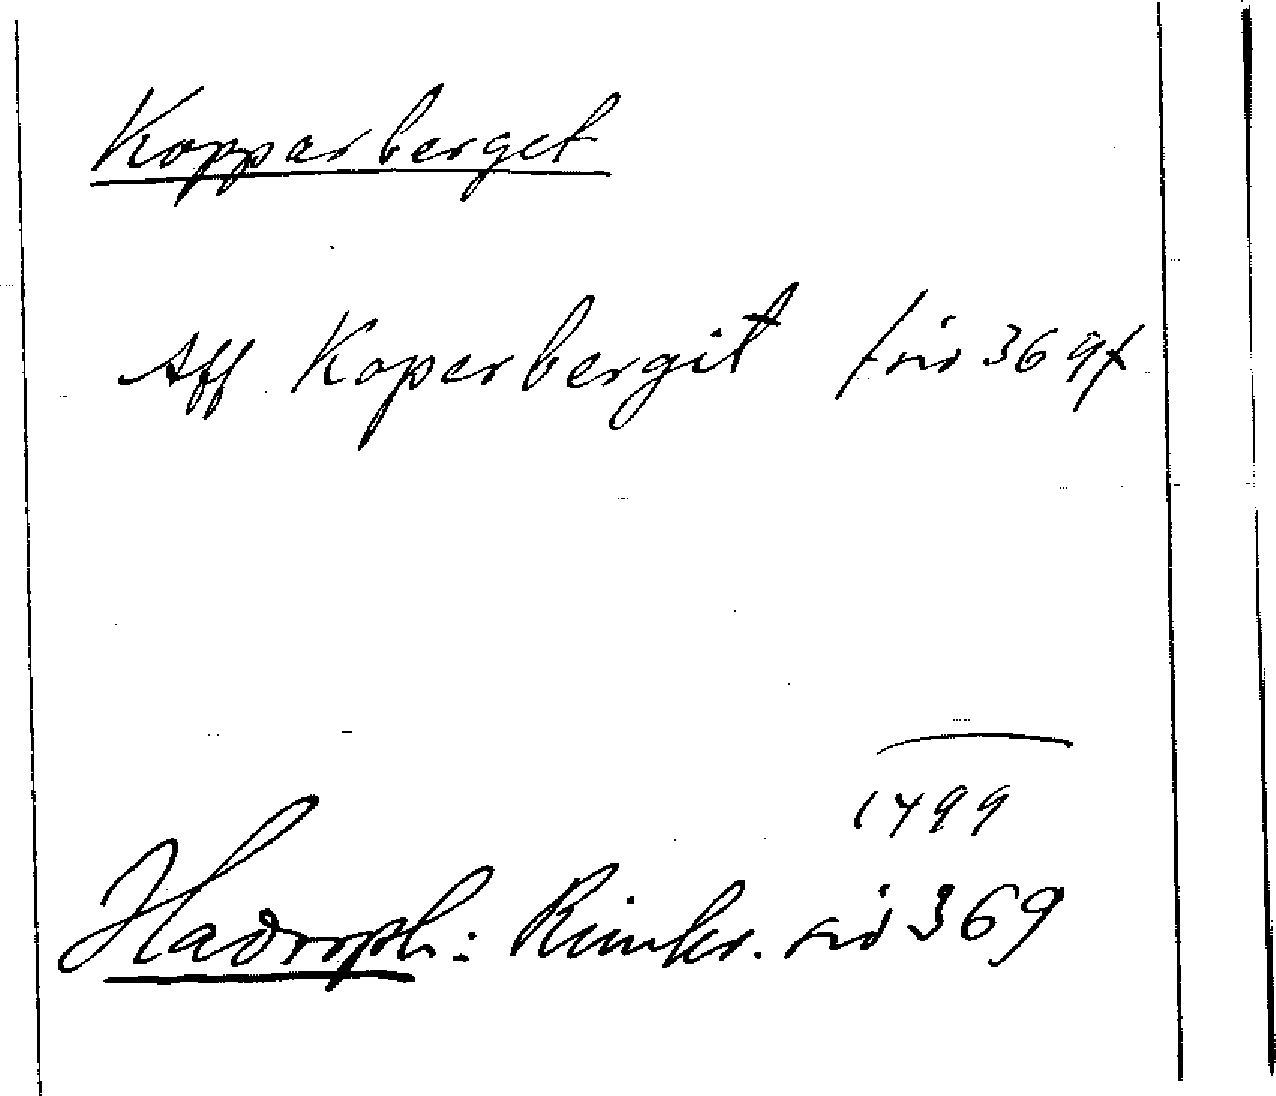 Kopparberget
Aff Koperbergit /sid 369/
1499
Hadorph: Rimkr. sid 369